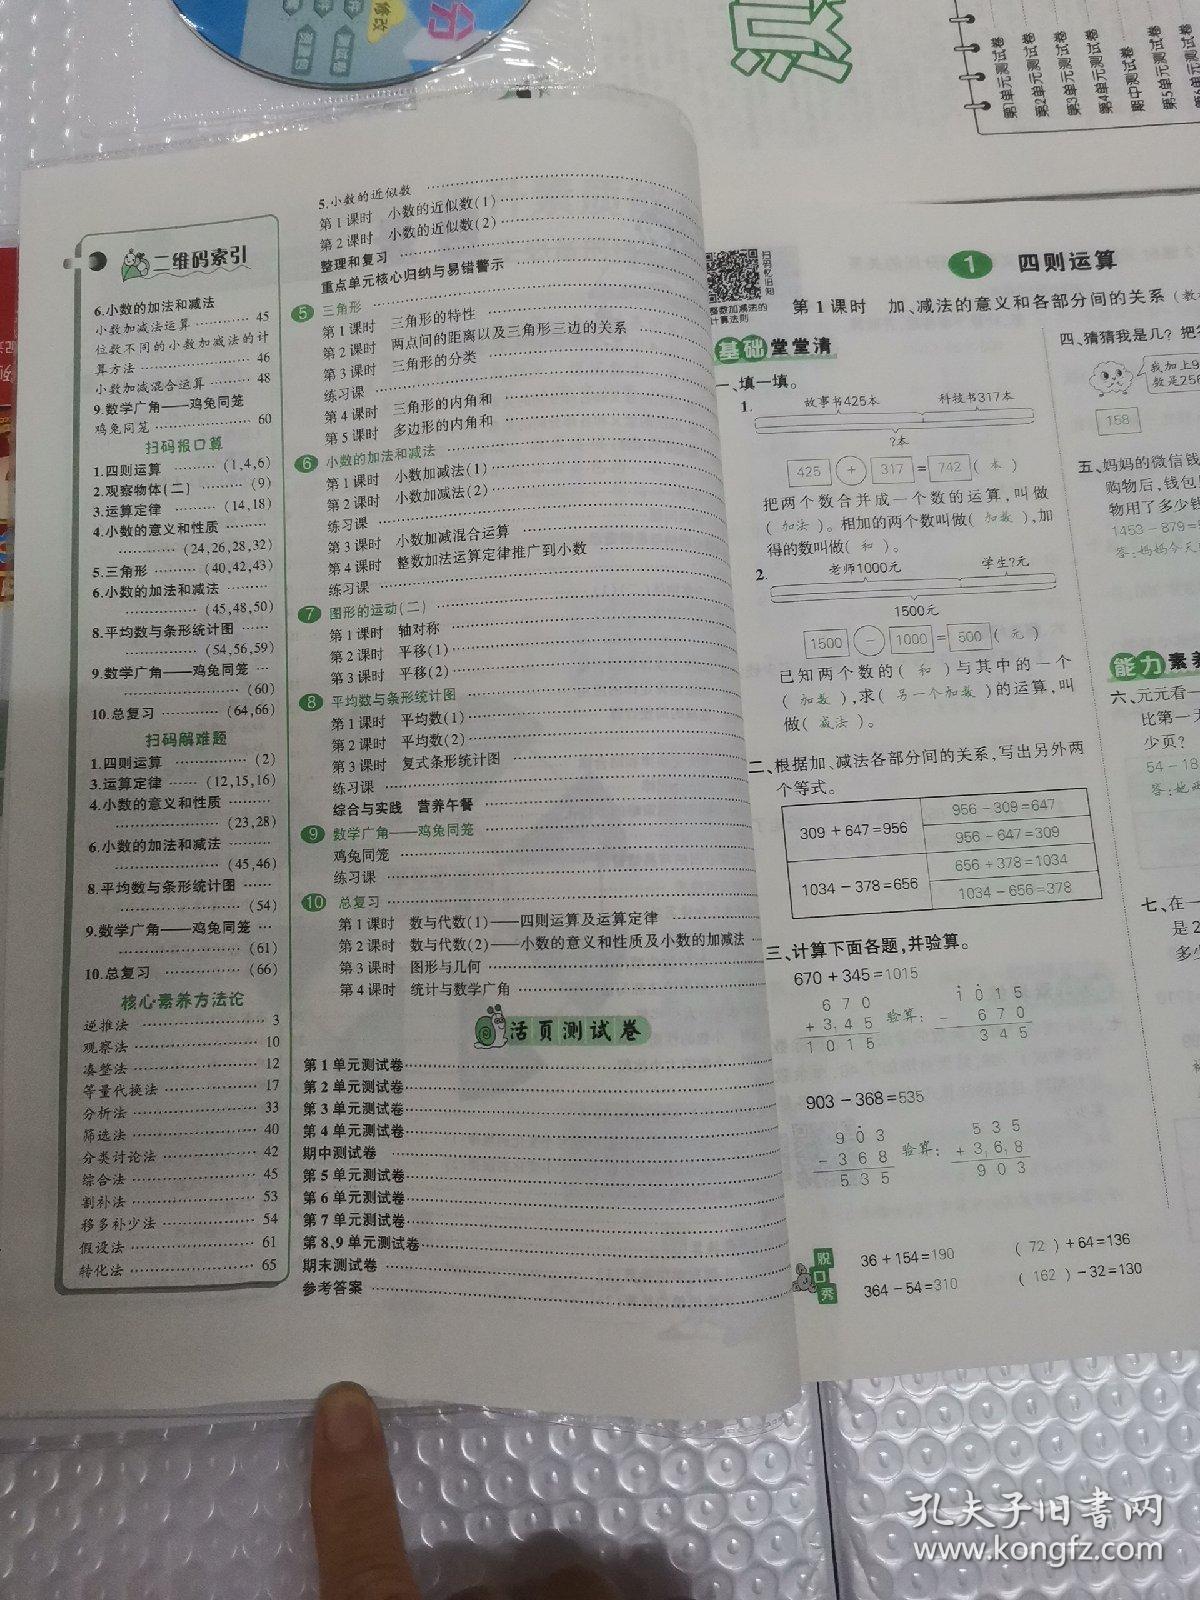 分
修改
点
第1单元测试卷
第2单元测试卷
第3单元测试卷
第4单元测试卷
期中测试卷
第5单元测试卷
二维码索引
6.小数的加法和减法
小数加减法运算 45
位数不同的小数加减法的计
算方法 46
小数加减混合运算 48
9.数学广角——鸡兔同笼
鸡兔同笼 60
扫码报口算
1.四则运算 (1,4,6)
2.观察物体(二) (9)
3.运算定律 (14,18)
4.小数的意义和性质
(24,26,28,32)
5.三角形 (40,42,43)
6.小数的加法和减法
(45,48,50)
8.平均数与条形统计图
(54,56,59)
9.数学广角——鸡兔同笼
(60)
10.总复习 (64,66)
扫码解难题
1.四则运算 (2)
3.运算定律 (12,15,16)
4.小数的意义和性质
(23,28)
6.小数的加法和减法
(45,46)
8.平均数与条形统计图
(54)
9.数学广角——鸡兔同笼
(61)
10.总复习 (66)
核心素养方法论
逆推法 3
观察法 10
凑整法 12
等量代换法 17
分析法 33
筛选法 40
分类讨论法 42
综合法 45
割补法 53
移多补少法 54
假设法 61
转化法 65
5.小数的近似数
第1课时 小数的近似数(1)
第2课时 小数的近似数(2)
整理和复习
重点单元核心归纳与易错警示
5 三角形
第1课时 三角形的特性
第2课时 两点间的距离以及三角形三边的关系
第3课时 三角形的分类
练习课
第4课时 三角形的内角和
第5课时 多边形的内角和
6 小数的加法和减法
第1课时 小数加减法(1)
第2课时 小数加减法(2)
练习课
第3课时 小数加减混合运算
第4课时 整数加法运算定律推广到小数
练习课
7 图形的运动(二)
第1课时 轴对称
第2课时 平移(1)
第3课时 平移(2)
8 平均数与条形统计图
第1课时 平均数(1)
第2课时 平均数(2)
第3课时 复式条形统计图
练习课
综合与实践 营养午餐
9 数学广角——鸡兔同笼
鸡兔同笼
练习课
10 总复习
第1课时 数与代数(1)——四则运算及运算定律
第2课时 数与代数(2)——小数的意义和性质及小数的加减法
第3课时 图形与几何
第4课时 统计与数学广角
活页测试卷
第1单元测试卷
第2单元测试卷
第3单元测试卷
第4单元测试卷
期中测试卷
第5单元测试卷
第6单元测试卷
第7单元测试卷
第8、9单元测试卷
期末测试卷
参考答案
扫码忆旧知
整数加减法的
计算法则
1 四则运算
第1课时 加、减法的意义和各部分间的关系
基础堂堂清
一、填一填。
1. 故事书425本 科技书317本
?本
425 + 317 = 742 ( 本 )
把两个数合并成一个数的运算,叫做
( 加法 )。相加的两个数叫做( 加数 ),加
得的数叫做( 和 )。
2. 老师1000元 学生?元
1500元
1500 - 1000 = 500 ( 元 )
已知两个数的( 和 )与其中的一个
( 加数 ),求( 另一个加数 )的运算,叫
做( 减法 )。
二、根据加、减法各部分间的关系,写出另外两
个等式。
309+647=956
956-309=647
956-647=309
1034-378=656
656+378=1034
1034-656=378
三、计算下面各题,并验算。
670+345=1015
6 7 0 验算: 1 0 1 5
+ 3 4 5 - 6 7 0
1 0 1 5 3 4 5
903-368=535
9 0 3 验算: 5 3 5
- 3 6 8 + 3 6 8
5 3 5 9 0 3
脱口秀
36+154=190 ( 72 )+64=136
364-54=310 ( 162 )-32=130
四、猜猜我是几?
我加上9
数是256
158
五、妈妈的微信钱
购物后,钱包
物用了多少钱
1453-879=
答:妈妈今天
能力素养
六、元元看一
比第一天
少页?
54-18
答:她
七、在一
是2
多少
孔夫子旧书网
www.kongfz.com